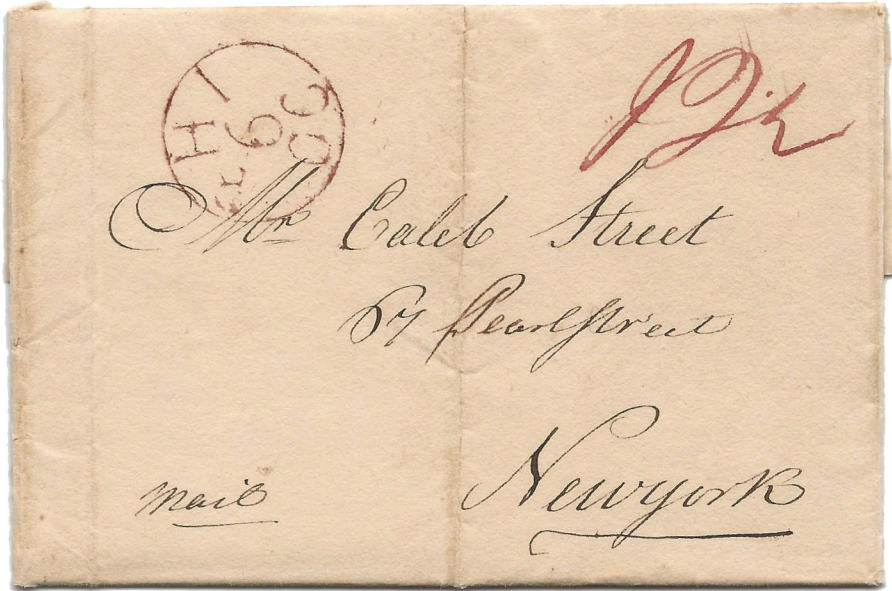 PHI
6 OC
12½
Mr Caleb Street
67 Pearl Street
Newyork
Mail